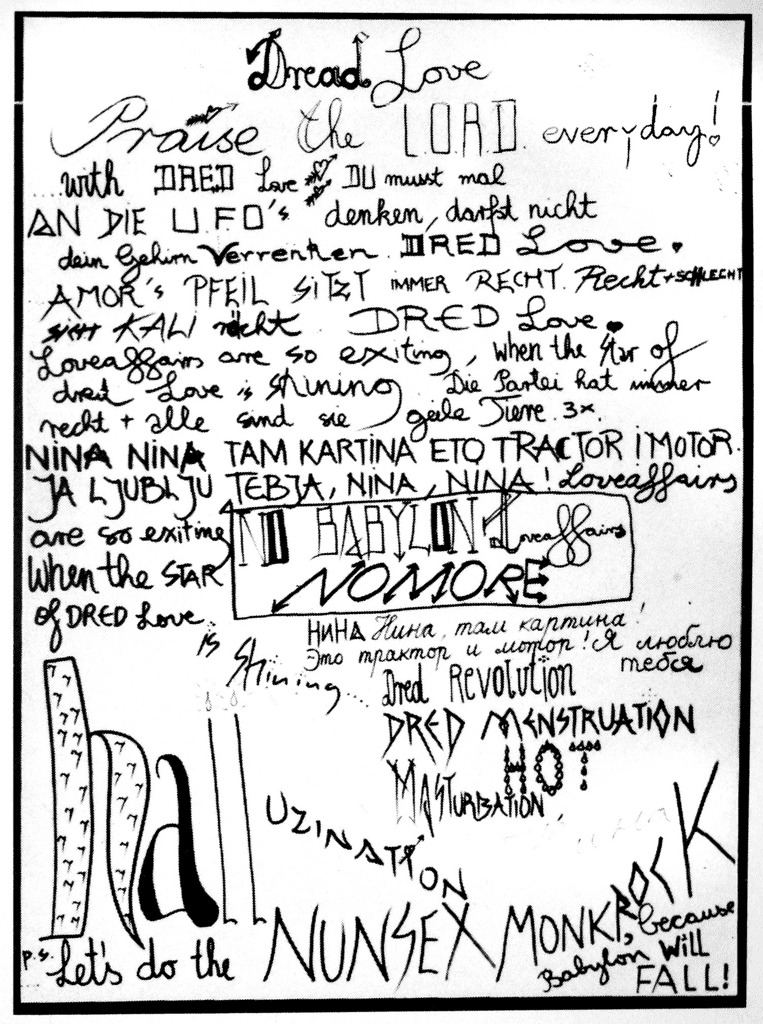 Dread Love
Praise the L.O.R.D. everyday!
...with DRED Love DU musst mal
AN DIE U.F.O's denken, darfst nicht
dein Gehirn Verrenken. DRED Love.
AMOR's PFEIL SiTZT IMMER RECHT. Recht + SCHLECHT
KALI rächt. DRED Love.
Loveaffairs are so exiting, when the star of
dred Love is shining Die Partei hat immer
recht + alle sind sie geile Tiere 3x.
NINA NINA TAM KARTINA ETO TRACTOR I MOTOR
JA LJUBLJU TEBJA, NINA, NINA! Loveaffairs
are so exiting
When the STAR
of DRED Love
is
Shining...
NO BABYLON Loveaffairs
NOMORE
НИНА Нина, там картина!
Это трактор и мотор! Я люблю
тебя
Dred REVOLUTION
DRED MENSTRUATION
HOT
MASTURBATION,
hall
UZINATION
p.s. Let's do the NUNSEX MONKROCK, because
Babylon Will
FALL!